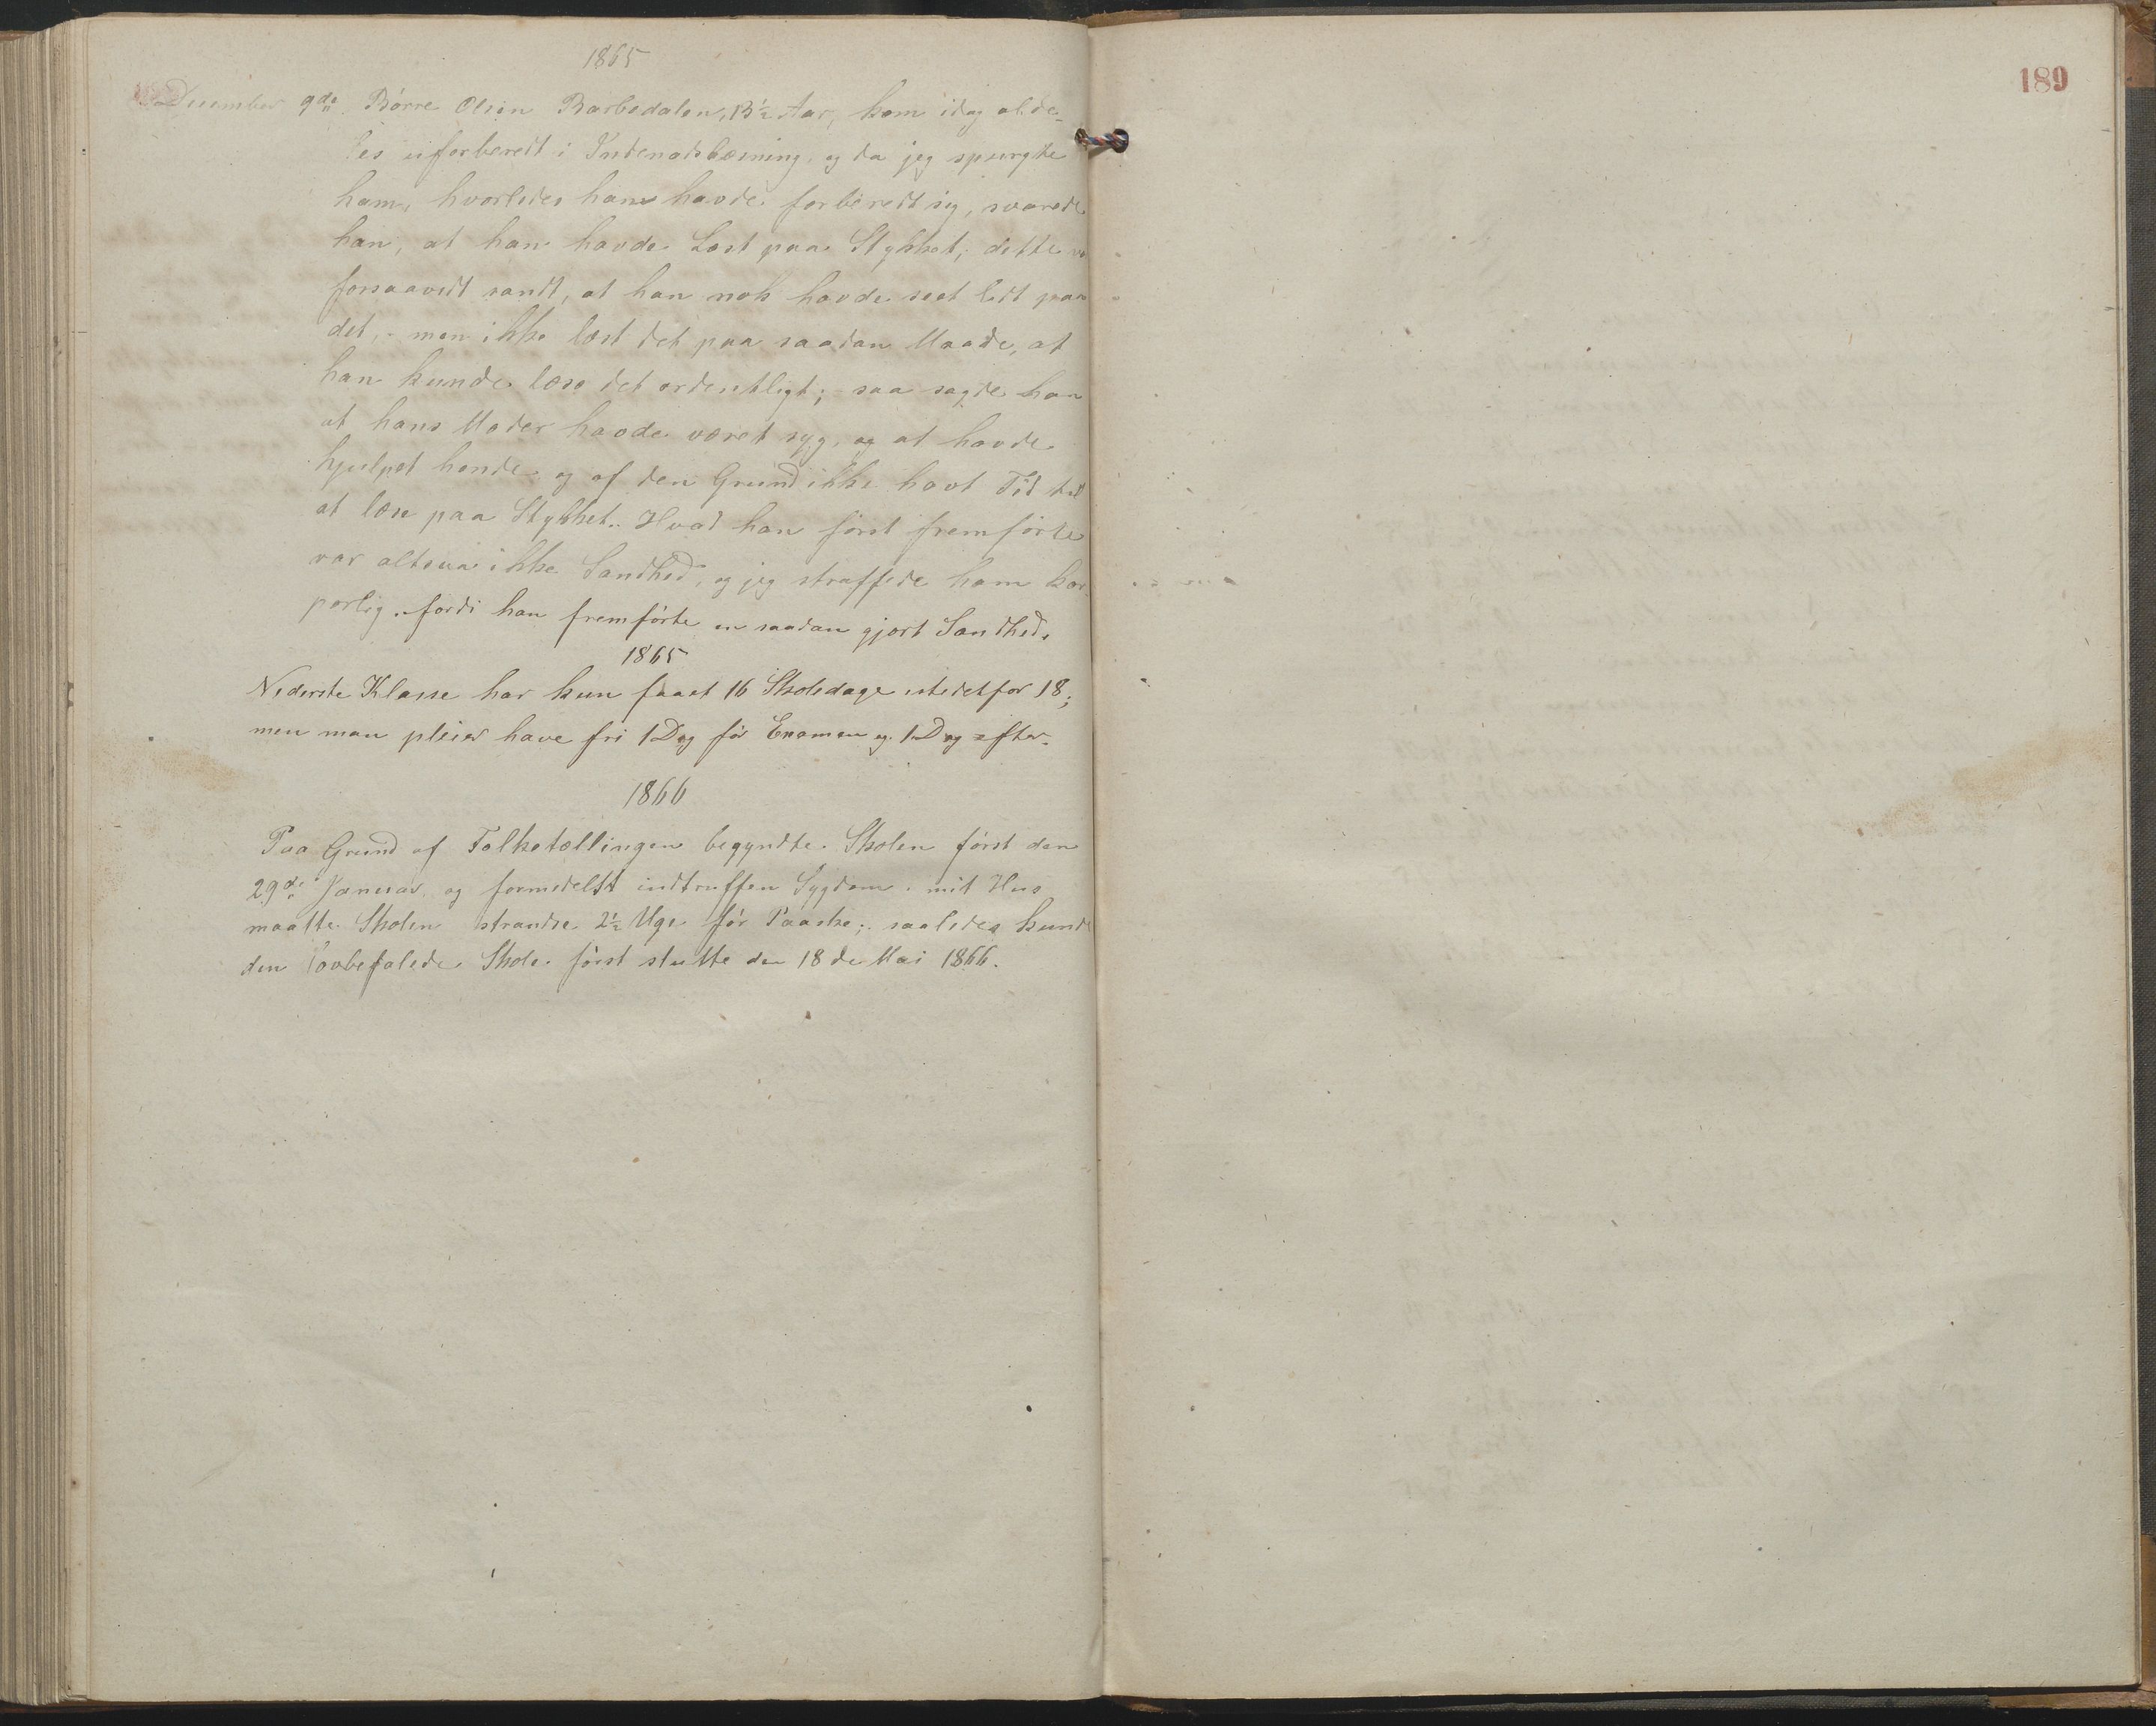 1865
December 9de Børre Olsen Barbodalen, 13½ Aar, kom idag alde-
les uforberedt i Indenadslæsning, og da jeg spurgte
ham, hvorledes han havde forberedt sig, svarede
han, at han havde Læst paa Stykket; dette
forsaavidt sandt, at han nok havde seet lidt paa
det, - men ikke læst det paa saadan Maade, at
han kunde læse det ordentligt; - saa sagde han
at hans Moder havde været syg, og at havde
hjulpet hende og af den Grund ikke havt Tid til
at læse paa Stykket. Hvad han først fremførte
var altsaa ikke Sandhed, og jeg straffede ham kor-
porlig, fordi han fremførte en saadan gjort Sandhed.
1865
Nederste Klasse har kun faaet 16 Skoledage istedetfor 18;
men man pleier have fri 1 Dag før Examen og 1 Dag efter.
1866
Paa Grund af Folketællingen begyndte Skolen først den
29de Januar, og formedelst indtruffen Sygdom i mit Hus
maatte Skolen strandse 2½ Uge før Paaske; saaledes kunde
den lovbefalede Skole først slutte den 18de Mai 1866.
189